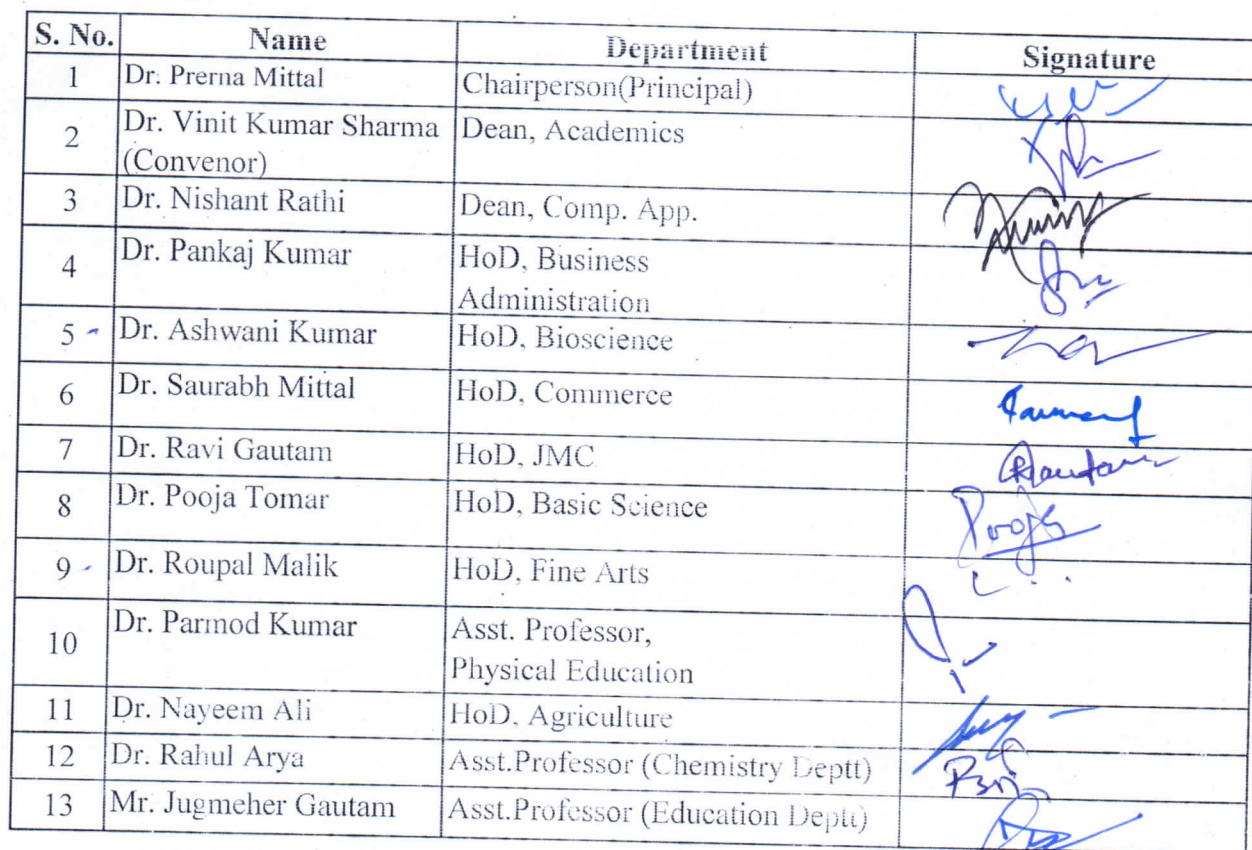 S. No. Name Department Signature
1 Dr. Prerna Mittal Chairperson(Principal)
2 Dr. Vinit Kumar Sharma Dean, Academics
(Convenor)
3 Dr. Nishant Rathi Dean, Comp. App.
4 Dr. Pankaj Kumar HoD, Business
Administration
5 Dr. Ashwani Kumar HoD, Bioscience
6 Dr. Saurabh Mittal HoD, Commerce
7 Dr. Ravi Gautam HoD, JMC
8 Dr. Pooja Tomar HoD, Basic Science Pooja
9 Dr. Roupal Malik HoD, Fine Arts
10 Dr. Parmod Kumar Asst. Professor,
Physical Education
11 Dr. Nayeem Ali HoD, Agriculture
12 Dr. Rahul Arya Asst.Professor (Chemistry Deptt)
13 Mr. Jugmeher Gautam Asst.Professor (Education Deptt)